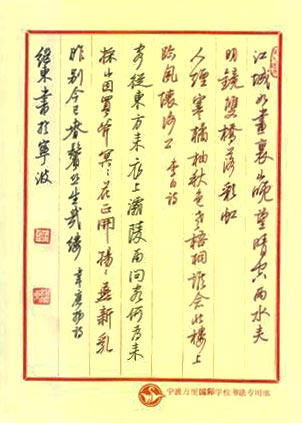 江城如畫裏山晚望晴空两水夹
明鏡雙橋落彩虹
人煙寒橘柚秋色老梧桐誰念北樓上
臨風懷謝公 李白詩
客從東方来衣上灞陵雨问客何为来
採山因買斧冥〻花正開颺〻燕新乳
昨别今已春鬢丝生幾缕 韋應物詩
東書於寧波
宁波万里国际学校书法专用纸